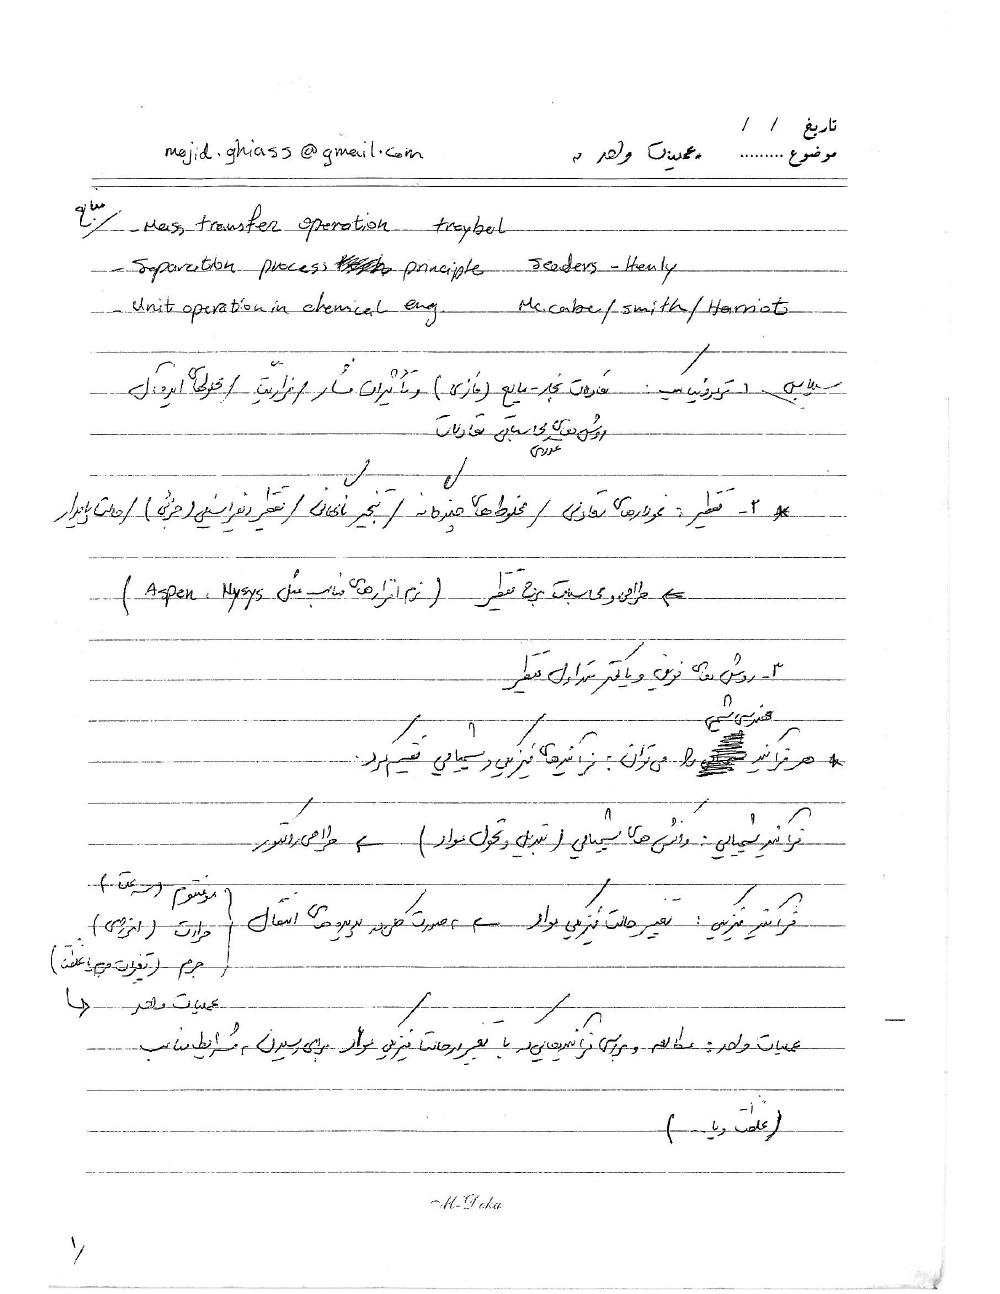 تاریخ / /
موضوع ......... عملیات واحد ۲ majid.ghiass@gmail.com
منابع / - Mass transfer operation treybal
- Separation process principle Seaders - Henly
- Unit operation in chemical eng. Mc.cabe/smith/Harriot
سیلابس ۱. ترمودینامیک: تعادلات بخار-مایع (فازی) و تأثیرات فشار / فراریت / محلولهای ایده‌آل
روش های محاسباتی تعادلات
عددی
* ۲- تقطیر: نمودارهای تعادلی / مخلوط های چندگانه / تبخیر ناگهانی / تقطیر دیفرانسیلی (جزئی) / حالت پایدار
← طراحی و محاسبات برج تقطیر (نرم افزارهای مناسب مثل Aspen , Hysys)
۳- روش های نوین و یا کمتر متداول تقطیر
مهندسی شیمی
* هر فرآیند را می توان به فرآیندهای فیزیکی و شیمیایی تقسیم کرد.
فرآیند شیمیایی: واکنش های شیمیایی (تبدیل و تحول مواد) ← طراحی راکتور
مومنتوم (سرعت)
فرآیند فیزیکی: تغییر حالت فیزیکی مواد ← به صورت کلی در پدیده های انتقال حرارت (انرژی)
جرم (تغییرات جرم یا غلظت)
عملیات واحد
عملیات واحد: مطالعه و بررسی فرآیندهایی که با تغییر در حالت فیزیکی مواد برای رسیدن به شرایط مناسب
(غلظت و یا ...)
M-Doka
۱/